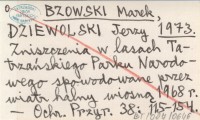 BZOWSKI Marek,
DZIEWOLSKI Jerzy 1973.
Zniszczenia w lasach Ta-
trzańskiego Parku Narodo-
wego spowodowane przez
wiatr halny wiosną 1968 r.
— Ochr. Przyr. 38: 115-154.